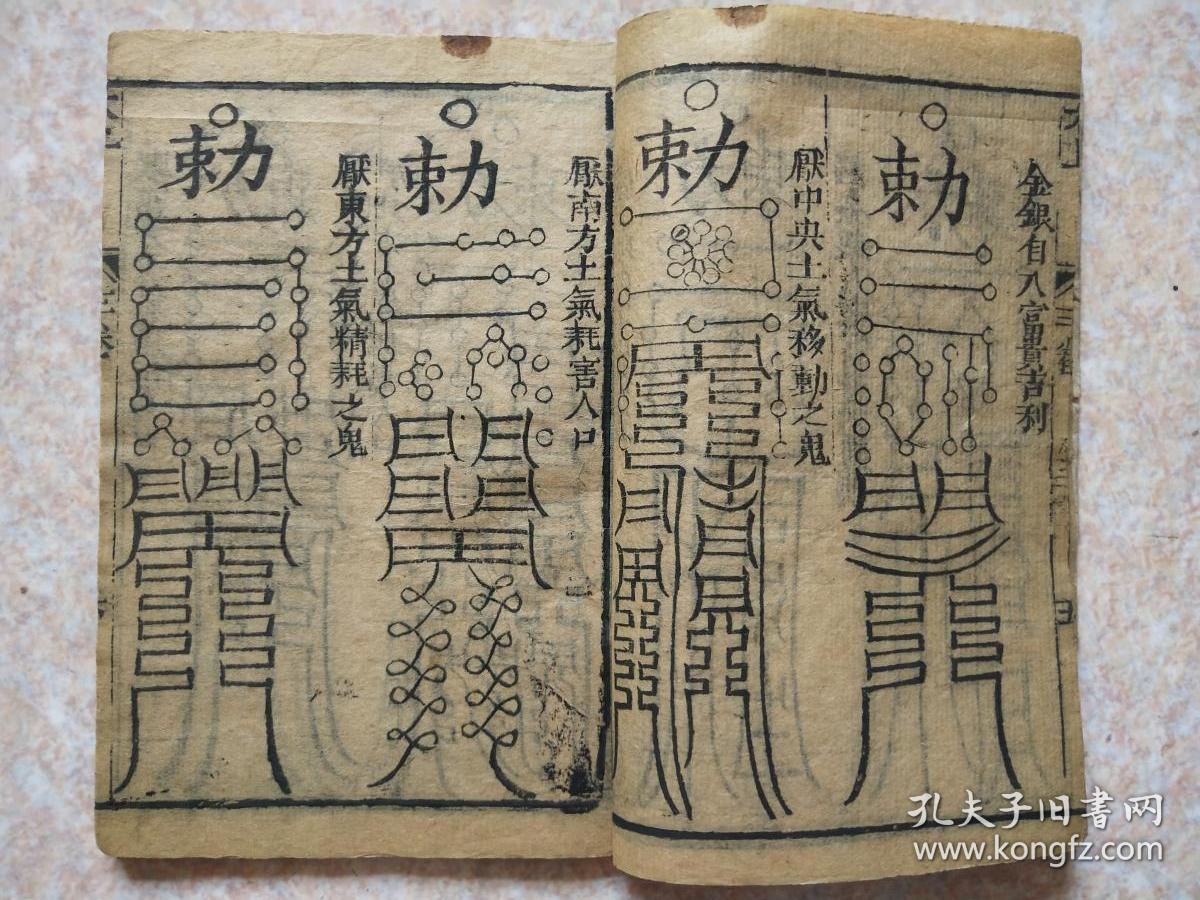 金銀自入富貴吉利
勅
厭中央土氣移動之鬼
勅
厭南方土氣耗害人口
勅
厭東方土氣精耗之鬼
勅
孔夫子旧书网
www.kongfz.com